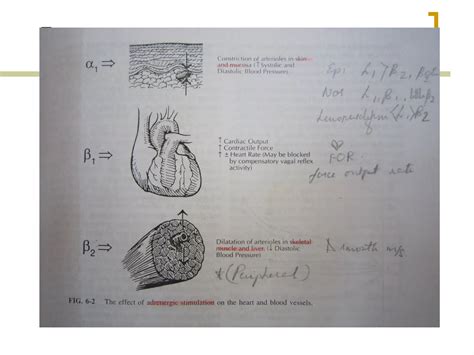 α₁ ⇒
Constriction of arterioles in skin
and mucosa (↑ Systolic and
Diastolic Blood Pressure)
Epi
Nor
β₁ ⇒
↑ Cardiac Output
↑ Contractile Force
↑ ± Heart Rate (May be blocked
by compensatory vagal reflex
activity)
FOR
force output rate
β₂ ⇒
Dilatation of arterioles in skeletal
muscle and liver. (↓ Diastolic
Blood Pressure)
(Peripheral)
FIG. 6-2 The effect of adrenergic stimulation on the heart and blood vessels.